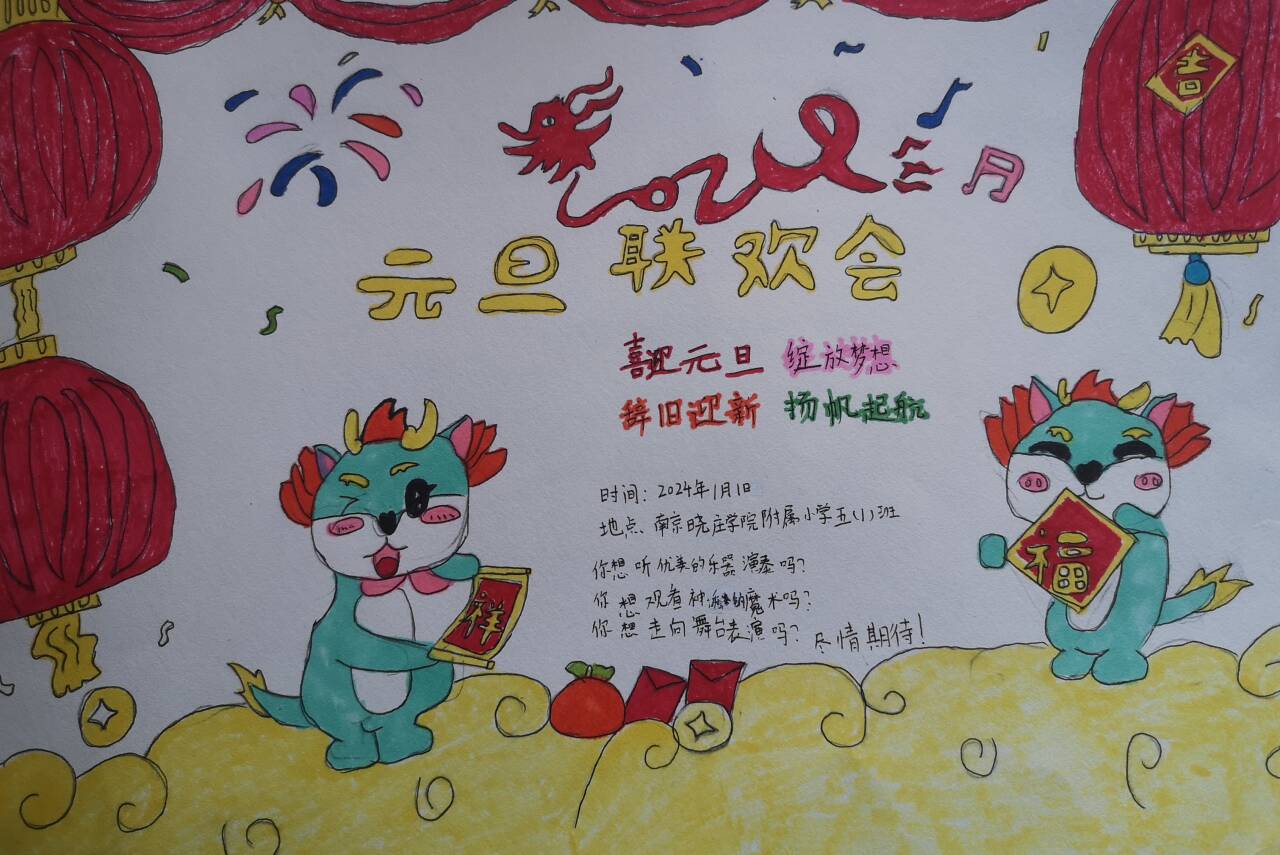 吉
2024
元旦联欢会
喜迎元旦 绽放梦想
辞旧迎新 扬帆起航
时间：2024年1月1日
地点 南京晓庄学院附属小学五(1)班
你想听优美的乐器演奏吗？
你想观看神的魔术吗？
你想走向舞台表演吗？尽情期待！
祥
福